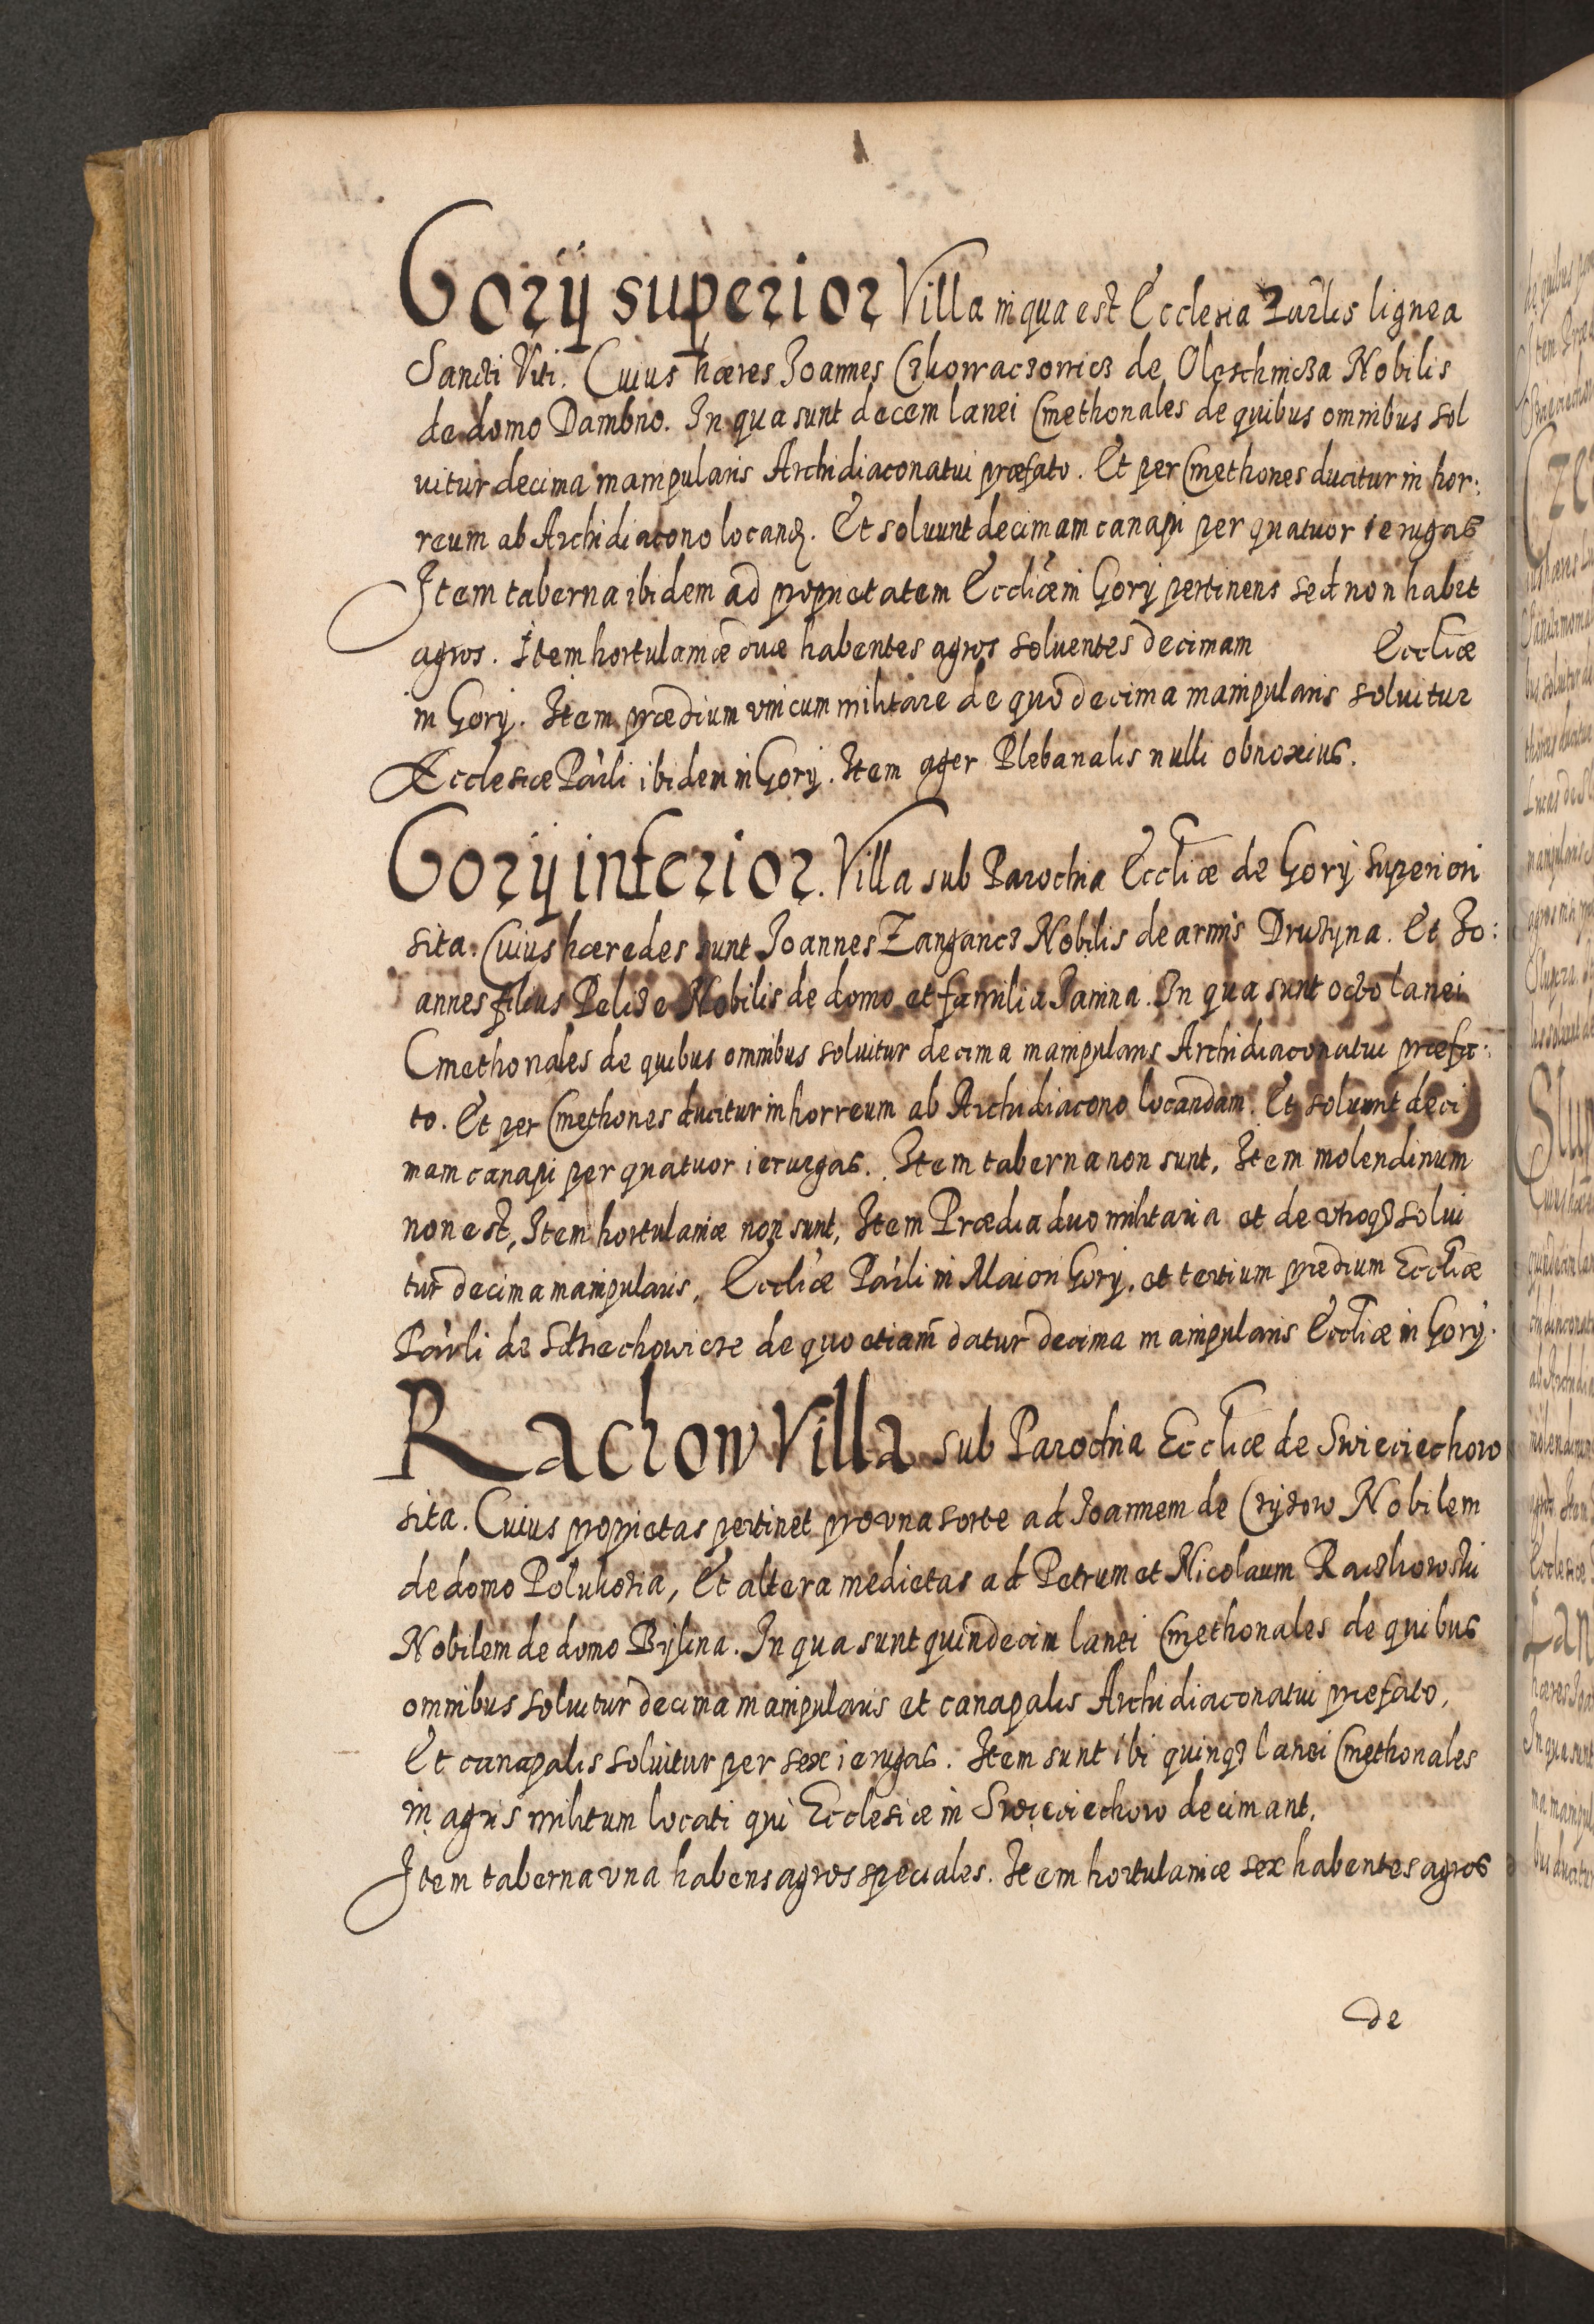 Gory superior Villa in qua est Ecclesia Parlis lignea
Sancti Viti. Cuius hæres Ioannes Czhorraczowicz de Oleschnicza Nobilis
de domo Dambno. In qua sunt decem lanei Cmethonales de quibus omnibus sol
uitur decima manipularis Archidiaconatui præfato. Et per Cmethones ducitur in hor:
reum ab Archidiacono locand. Et soluunt decimam canapi per quatuor ierugas
Item taberna ibidem ad proprietatem Eccliæ in Gory pertinens sed non habet
agros. Item hortulaniæ duæ habentes agros soluentes decimam Eccliæ
in Gory. Item prædium vnicum militare de quo decima manipularis soluitur
Ecclesiæ Parli ibidem in Gory. Item ager Plebanalis nulli obnoxius.
Gory inferior. Villa sub Parochia Eccliæ de Gory superiori
sita. Cuius hæredes sunt Ioannes Zangancz Nobilis de armis Druzyna. Et Io:
annes filius Pelize Nobilis de domo et familia Janina. In qua sunt octo lanei
Cmethonales de quibus omnibus soluitur decima manipularis Archidiaconatui præfa:
to. Et per Cmethones ducitur in horreum ab Archidiacono locandam. Et soluunt deci
mam canapi per quatuor ierugas. Item taberna non sunt, Item molendinum
non est, Item hortulaniæ non sunt, Item Prædia duo militaria et de vtroq3 solui
tur decima manipularis, Eccliæ Parli in Maiori Gory, et tertium prædium Eccliæ
Parli de Sdziechowicze de quo etiam datur decima manipularis Eccliæ in Gory.
Rachow Villa sub Parochia Eccliæ de Swieciechow
sita. Cuius proprietas pertinet pro vna sorte ad Ioannem de Czyzow Nobilem
de domo Polukozia, Et altera medietas ad Petrum et Nicolaum Raczhowski
Nobilem de domo Bylina. In qua sunt quindecim lanei Cmethonales de quibus
omnibus soluitur decima manipularis et canapalis Archidiaconatui præfato,
Et canapalis soluitur per sex ierugas. Item sunt ibi quinq3 lanei Cmethonales
in agris militum locati qui Ecclesiæ in Swieciechow decimant.
Item taberna vna habens agros speciales. Item hortulaniæ sex habentes agros
de